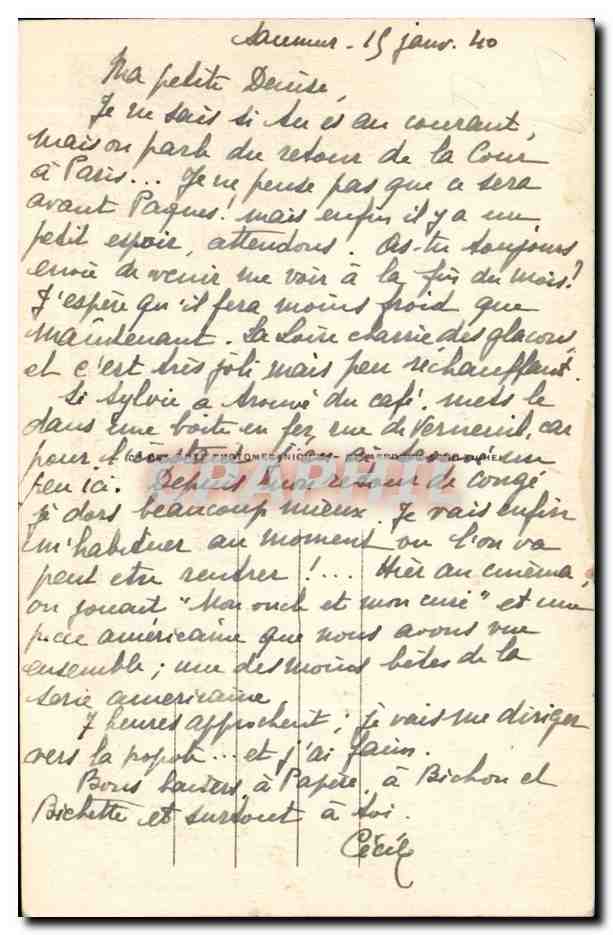 Saumur - 15 janv. 40
Ma petite Denise,
Je ne sais si tu es au courant,
mais on parle du retour de la Cour
à Paris... Je ne pense pas que ce sera
avant Paques! mais enfin il y a un
petit espoir, attendons. As-tu toujours
envie de venir me voir à la fin du mois?
J'espère qu'il fera moins froid que
maintenant. La Loire charrie des glaçons,
et c'est très joli mais peu réchauffant.
Si Sylvie a trouvé du café, mets le
dans une boite en fer, rue de Verneuil, car
pour l'
peu ici. Depuis mon retour de congé
je dors beaucoup mieux. Je vais enfin
m'habituer au moment ou l'on va
peut etre rentrer!... Hier au cinéma,
on jouait "Mon oncle et mon curé" et une
piece américaine que nous avons vue
ensemble; une des moins bêtes de la
serie americaine
7 heures approchent; je vais me diriger
vers la popote... et j'ai faim.
Bons baisers à Papère, à Bichon et
Bichette et surtout à toi.
Cécile
CPAPHIL